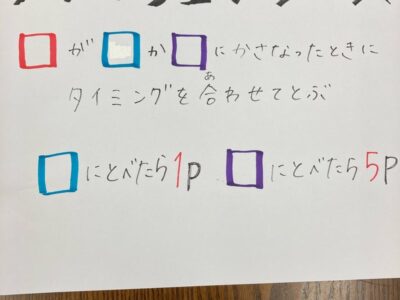 □が□か□にかさなったときに
タイミングを合わせてとぶ
□にとべたら1p □にとべたら5p